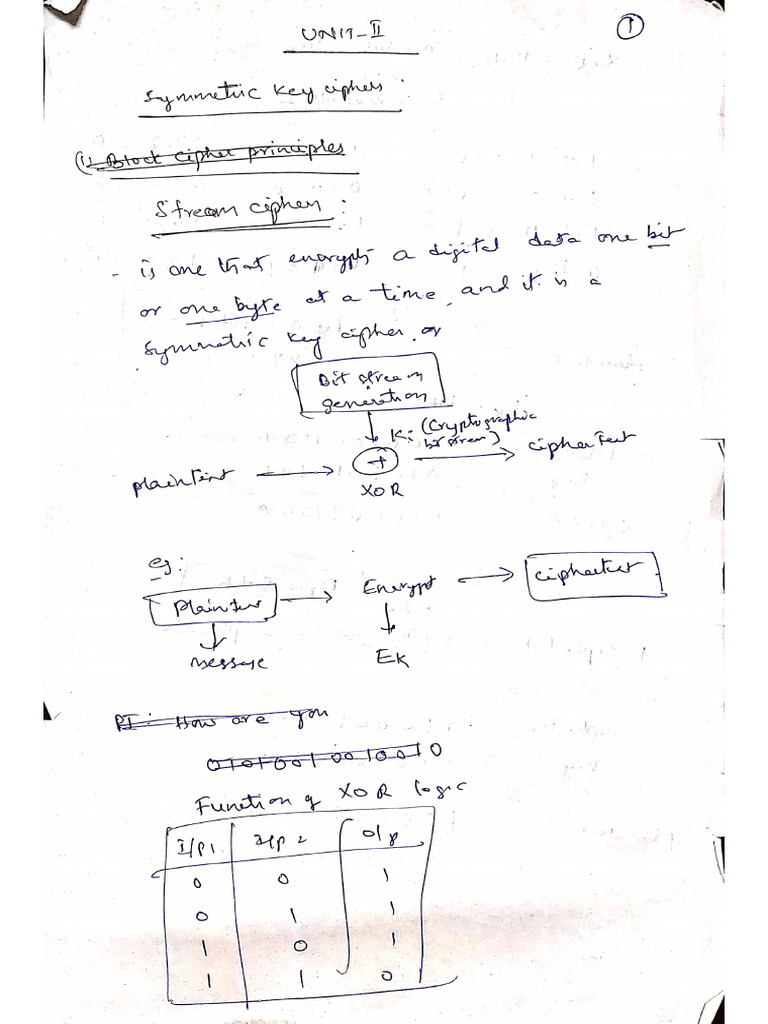 UNIT-II
1
Symmetric Key ciphers :
(1) Block cipher principles
Stream cipher :
- is one that encrypts a digital data one bit
or one byte at a time, and it is a
symmetric key cipher. or
Bit stream
generation
Ki (Cryptographic
bit stream)
plaintext → + → ciphertext
XOR
eg:
Plaintext → Encrypt → ciphertext
message EK
PT: How are you
01010010010010
Function of XOR logic
I/P1 I/P2 O/P
0 0 1
0 1 1
1 0 1
1 1 0